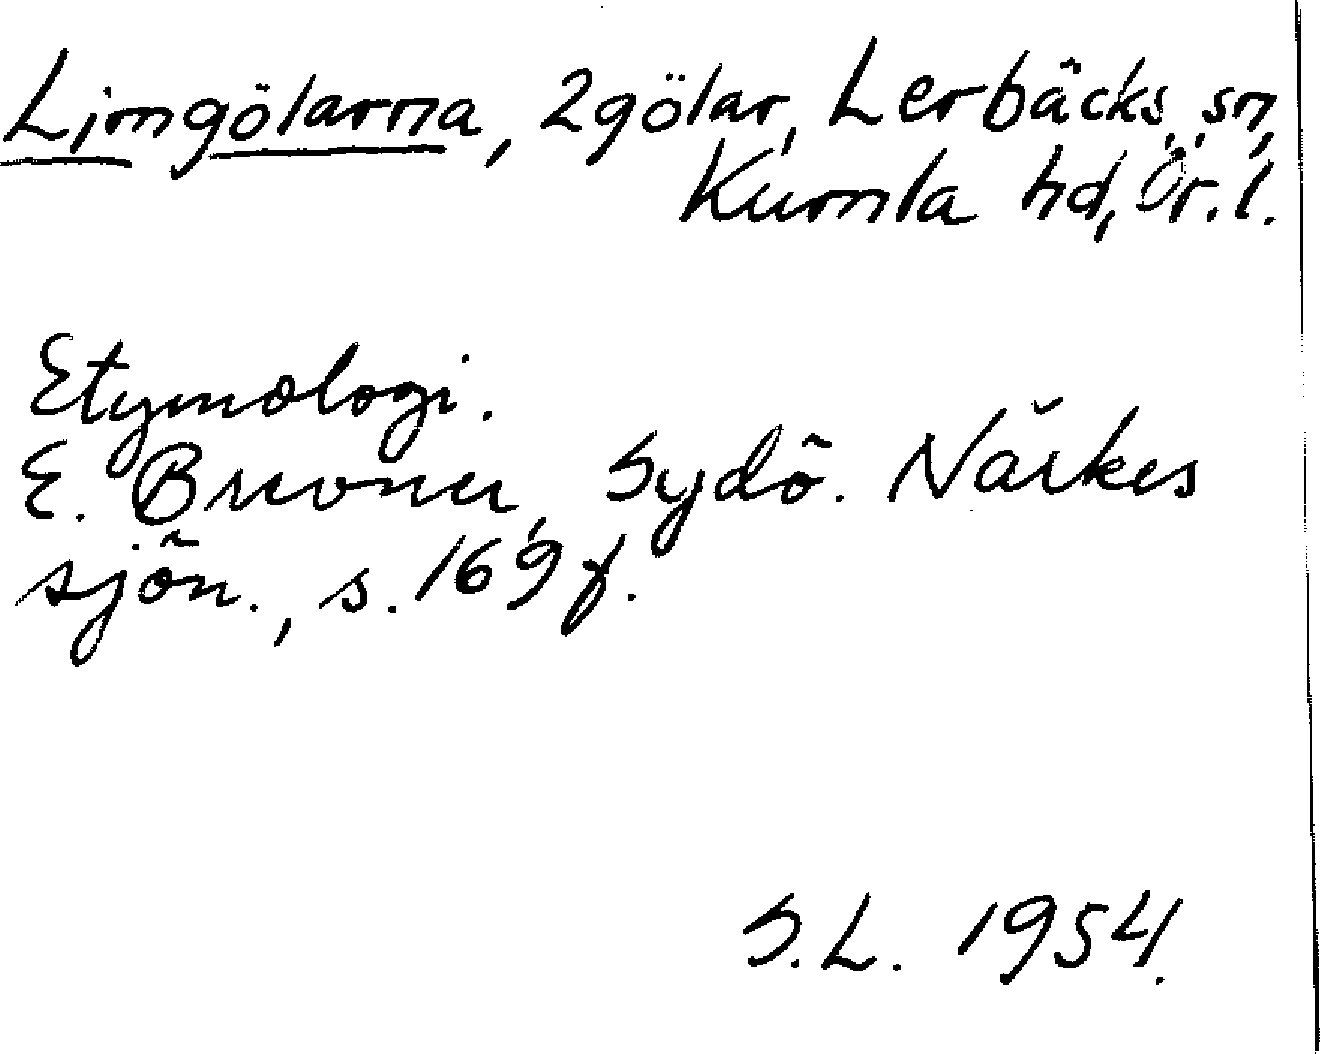 Limgölarna, 2 gölar, Lerbäcks sn,
Kumla hd, Ör. l.
Etymologi.
E. Brevner, Sydö. Närkes
sjön., s. 169 f.
S.L. 1954.